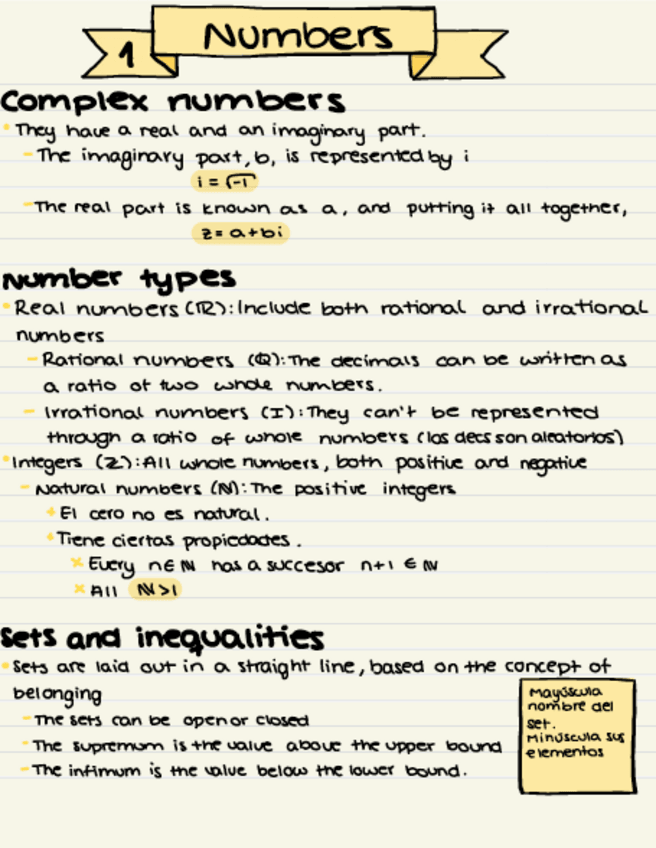 1 Numbers
Complex numbers
• They have a real and an imaginary part.
- The imaginary part, b, is represented by i
i = √-1
- The real part is known as a, and putting it all together,
z = a+bi
Number types
• Real numbers (ℝ): Include both rational and irrational
numbers
- Rational numbers (ℚ): The decimals can be written as
a ratio of two whole numbers.
- Irrational numbers (I): They can't be represented
through a ratio of whole numbers (los decs son aleatorios)
• Integers (Z): All whole numbers, both positive and negative
- Natural numbers (ℕ): The positive integers
+ El cero no es natural.
+ Tiene ciertas propiedades.
× Every n ∈ ℕ has a succesor n+1 ∈ ℕ
× All ℕ > 1
Sets and inequalities
• Sets are laid out in a straight line, based on the concept of
belonging
- The sets can be open or closed
- The supremum is the value above the upper bound
- The infimum is the value below the lower bound.
Mayúscula
nombre del
set.
Minúscula sus
elementos